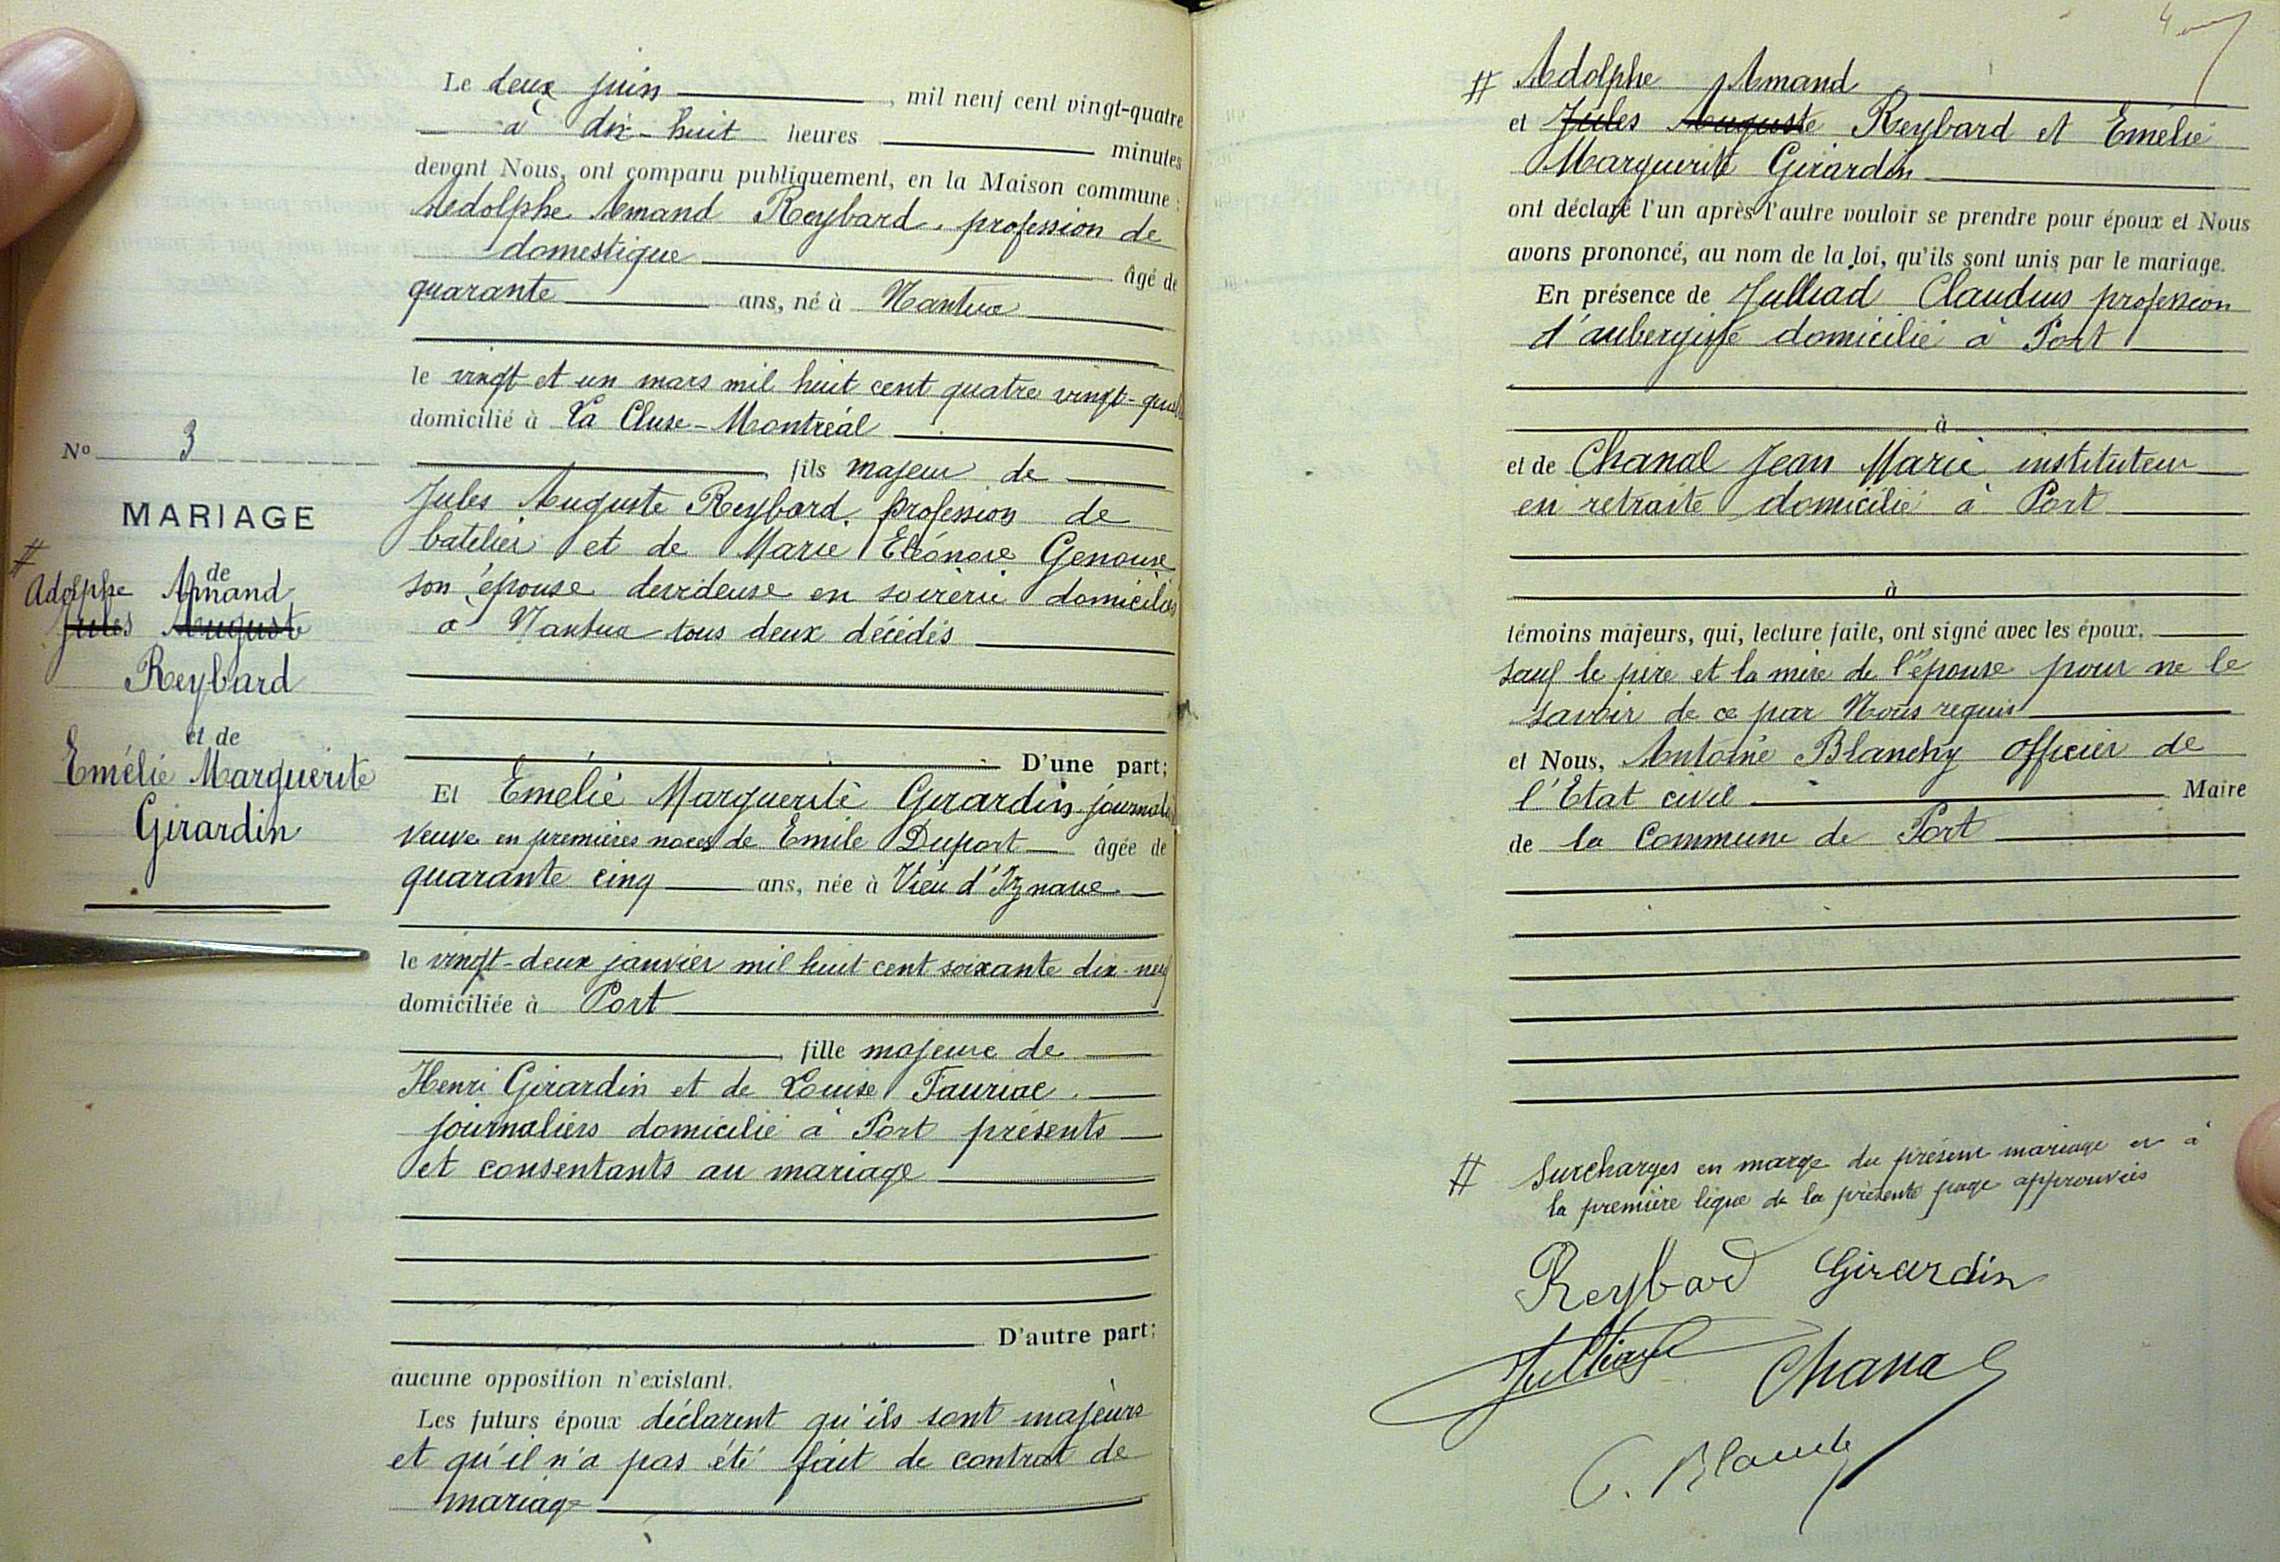 Le deux juin, mil neuf cent vingt-quatre
à dix-huit heures minutes
devant Nous, ont comparu publiquement, en la Maison commune :
Adolphe Amand Reybard, profession de
domestique âgé de
quarante ans, né à Nantua
le vingt et un mars mil huit cent quatre vingt-quat
domicilié à La Cluse-Montréal
, fils majeur de
Jules Auguste Reybard, profession de
batelier et de Marie Eléonore Genoux
son épouse devideuse en soierie domiciliés
à Nantua tous deux décédés
D'une part;
Et Emélie Marguerite Girardin journali
veuve en premières noces de Emile Duport âgée de
quarante cinq ans, née à Vieu d'Iznave
le vingt-deux janvier mil huit cent soixante dix-neuf
domiciliée à Port
, fille majeure de
Henri Girardin et de Louise Fauriac
journaliers domicilié à Port présents
et consentants au mariage
D'autre part;
aucune opposition n'existant.
Les futurs époux déclarent qu'ils sont majeurs
et qu'il n'a pas été fait de contrat de
mariage
No 3
MARIAGE
# de
Adolphe Amand
Jules Auguste
Reybard
et de
Emélie Marguerite
Girardin
# Adolphe Amand
et Jules Auguste Reybard et Emélie
Marguerite Girardin
ont déclaré l'un après l'autre vouloir se prendre pour époux et Nous
avons prononcé, au nom de la loi, qu'ils sont unis par le mariage.
En présence de Julliard Claudius profession
d'aubergiste domicilié à Port
à
et de Chanal Jean Marie instituteur
en retraite domicilié à Port
à
témoins majeurs, qui, lecture faite, ont signé avec les époux.
sauf le père et la mère de l'épouse pour ne le
savoir de ce par Nous requis
et Nous, Antoine Blanchy officier de
l'Etat civil Maire
de la Commune de Port
# Surcharges en marge du présent mariage et à
la première ligne de la présente page approuvées
Reybard Girardin
Julliard Chanal